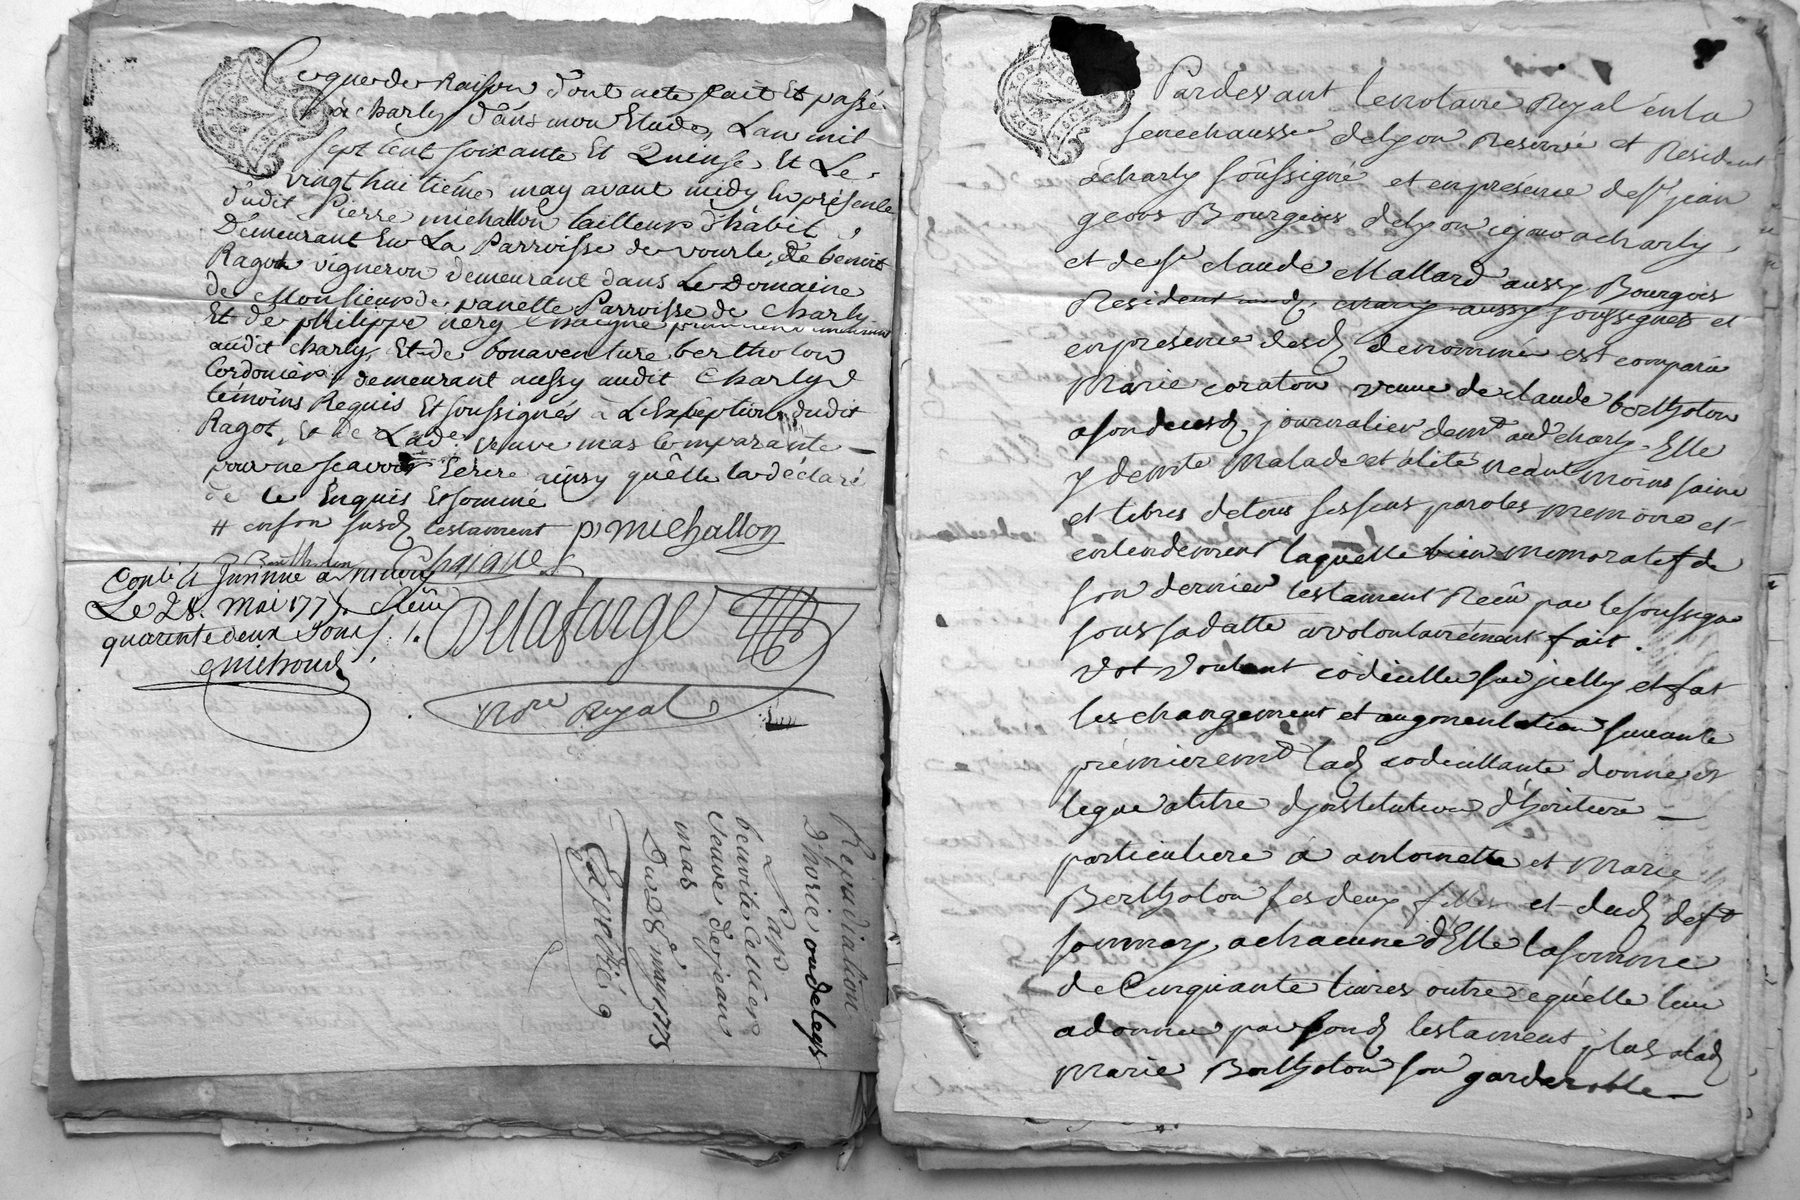 Ce que de Raison dont acte fait Et passé
à charly dans mon Etude, Lan mil
sept cent soixante Et Quinse, Et Le
vingt huitiéme may avant midy En présence
dudit Pierre michallon tailleur d'habit,
Demeurant En La Parroisse de vourle, De benoit
Ragot vigneron demeurant dans Le Domaine
de Monsieur de panette Parroisse de Charly
Et de philippe nery Chaigne
audit charly, Et de bonaventure bertholon
Cordonier, demeurant aussy audit Charly
témoins Requis Et soussignés à L'Exception dudit
Ragot, Et de Lade. veuve mas Comparante
pour ne scavoir Ecrire ainsy qu'elle la déclaré
de ce Enquis Et sommé
# en son susd. testament p. michallon
Bertholon Chaigne
Conlé
Le 28. Mai 1775.
quarente deux sous
Delafarge
Nore Royal
Répudiation
d'horie ou de legs
Par
benoite Cellier
veuve de jean
mas
Du 28e may 1775
Expedié
Pardevant le notaire Royal en la
senechaussé de lyon Reservé et Resident
a charly soussigné et en présence de sr jean
geoos Bourgeois de lyon
et de sr claude Mallard aussy Bourgois
Resident aud. charly aussy soussignés et
en présence desd. denommé est comparu
Marie coraton veuve de claude bertholon
a son decesd. journalier demt aud. charly. Elle
y demte Malade et alité neant moins saine
et libres de tous ses sens paroles memoire et
entendement laquelle bien memoratif de
son dernier testament Recu par le soussigné
sous sa datte a volontairement fait.
Vot Voulant codiciller sur jcelluy et fat
les changement et augmentation suivante
premieremt lad. codicillante donne et
legue a titre d'jnstitution d'heritiere
particuliere à antoinette et Marie
Bertholon ses deux filles et dud. deft
sonmary, a chacune d'Elle la somme
de Cinquante livres outre cequ'elle leur
a donnee par sond. testament, plus a lad.
Marie Bertholon son garderobbe